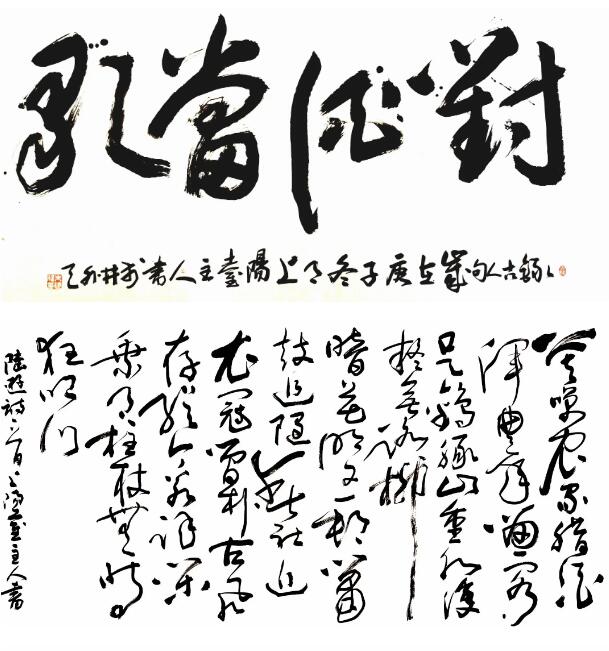 對酒當歌
錄古人句歲在庚子冬月上陽臺主人書於井外天
莫笑農家臘酒
渾豐年留客
足鷄豚山重水復
疑無路柳
暗花明又一村簫
鼓追隨春社近
衣冠簡朴古風
存從今若許閑
乘月拄杖無時
夜叩门
陸遊詩一首上陽臺主人書